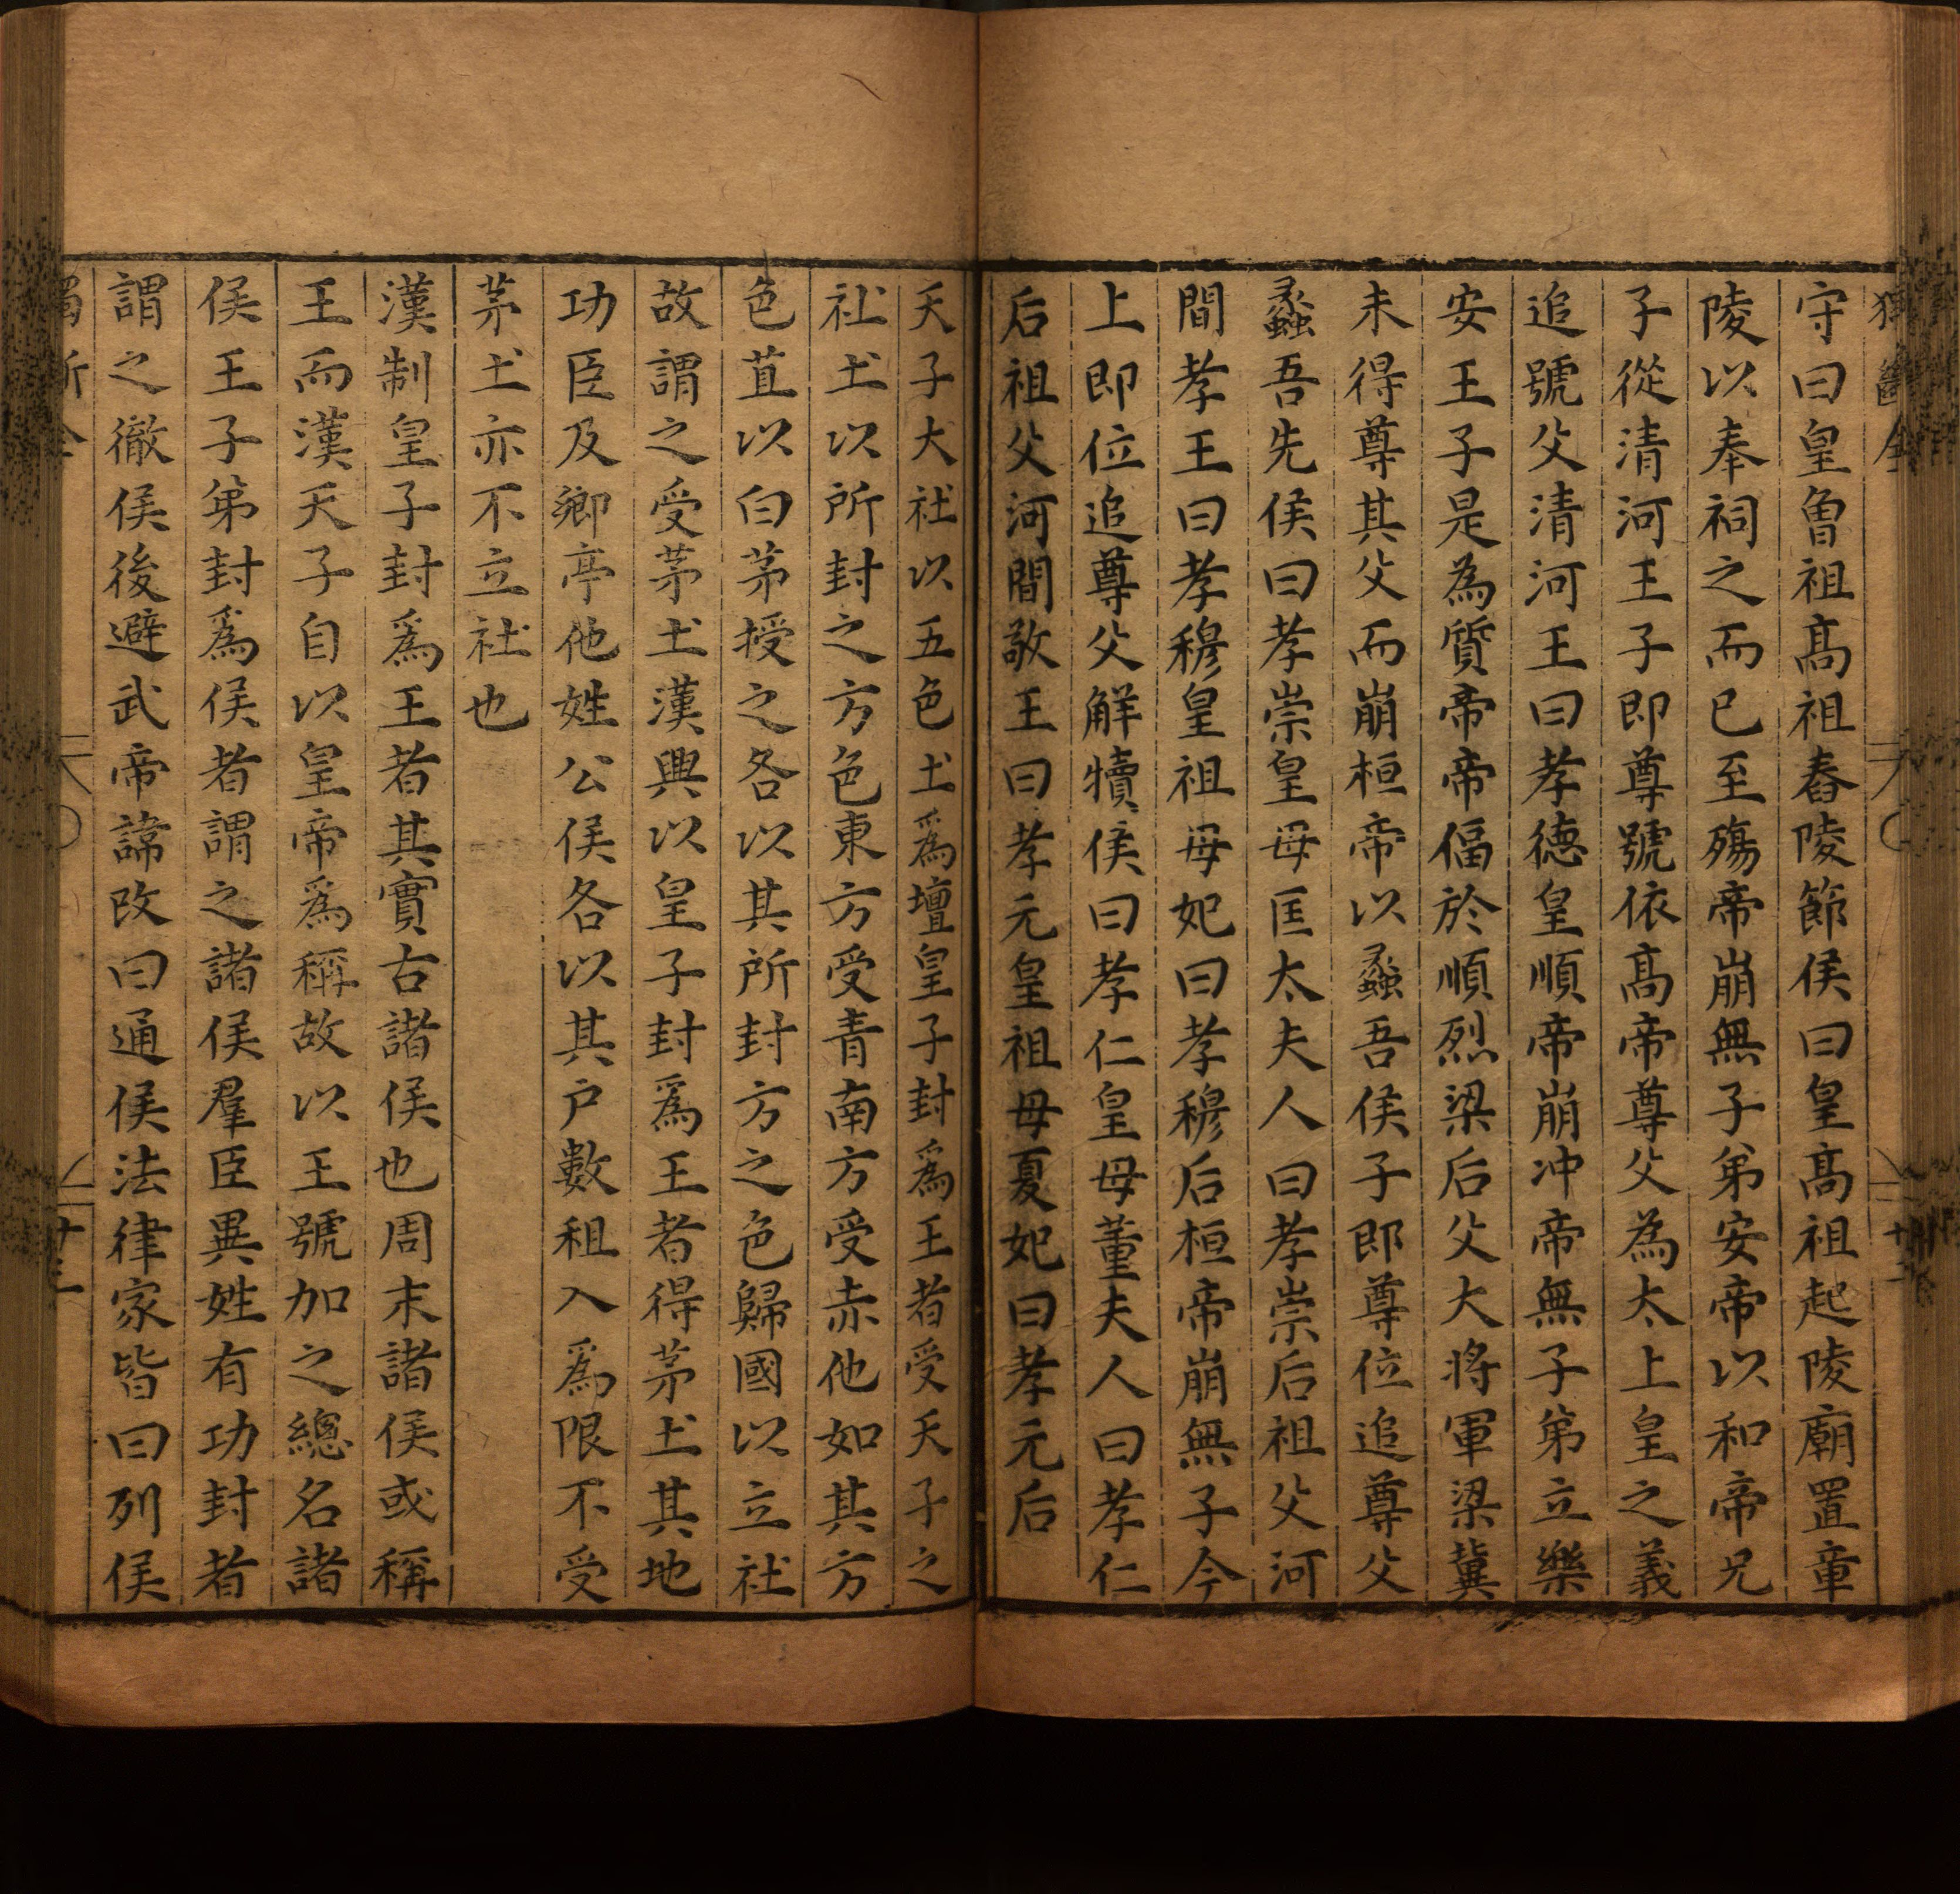 守曰皇曾祖髙祖舂陵節侯曰皇髙祖起陵廟置章
陵以奉祠之而已至殤帝崩無子弟安帝以和帝兄
子從清河王子即尊號依髙帝尊父為太上皇之義
追號父清河王曰孝德皇順帝崩冲帝無子弟立樂
安王子是為質帝帝偪於順烈梁后父大將軍梁冀
未得尊其父而崩桓帝以蠡吾侯子即尊位追尊父
蠡吾先侯曰孝崇皇母匡太夫人曰孝崇后祖父河
間孝王曰孝穆皇祖母妃曰孝穆后桓帝崩無子今
上即位追尊父解犢侯曰孝仁皇母董夫人曰孝仁
后祖父河間敬王曰孝元皇祖母夏妃曰孝元后
天子大社以五色土爲壇皇子封爲王者受天子之
社土以所封之方色東方受青南方受赤他如其方
色苴以白茅授之各以其所封方之色歸國以立社
故謂之受茅土漢興以皇子封爲王者得茅土其地
功臣及鄉亭他姓公侯各以其戸數租入爲限不受
茅土亦不立社也
漢制皇子封爲王者其實古諸侯也周末諸侯或稱
王而漢天子自以皇帝爲稱故以王號加之總名諸
侯王子弟封爲侯者謂之諸侯羣臣異姓有功封者
謂之徹侯後避武帝諱改曰通侯法律家皆曰列侯